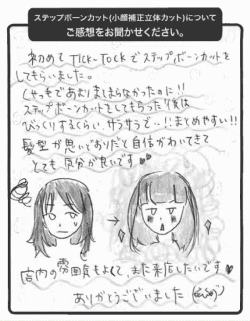 ステップボーンカット(小顔補正立体カット)について
ご感想をお聞かせください。
初めて TICK-TOCKでステップボーンカットを
してもらいました。
くせっ毛でおさまりきらなかったのに!!
ステップボーンカットをしてもらった後は
びっくりするくらい サラサラで…!!まとめやすい!!
髪型が思いどおりだと自信がわいてきて
とても気分が良いです♥♥
店内の雰囲気もよくて、また来店したいです♥
ありがとうございました